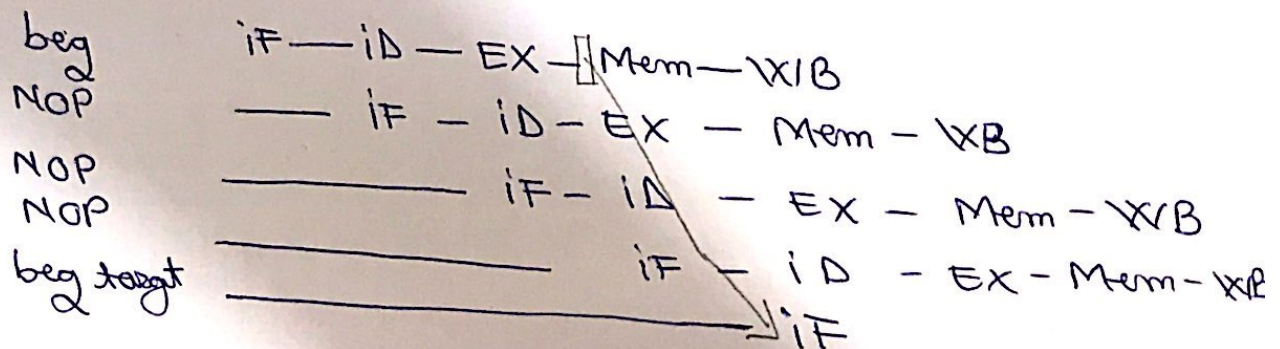 beq iF — iD — EX — Mem — WB
NOP — iF — iD — EX — Mem — WB
NOP — iF — iD — EX — Mem — WB
NOP — iF — iD — EX — Mem — WB
beq targt — iF